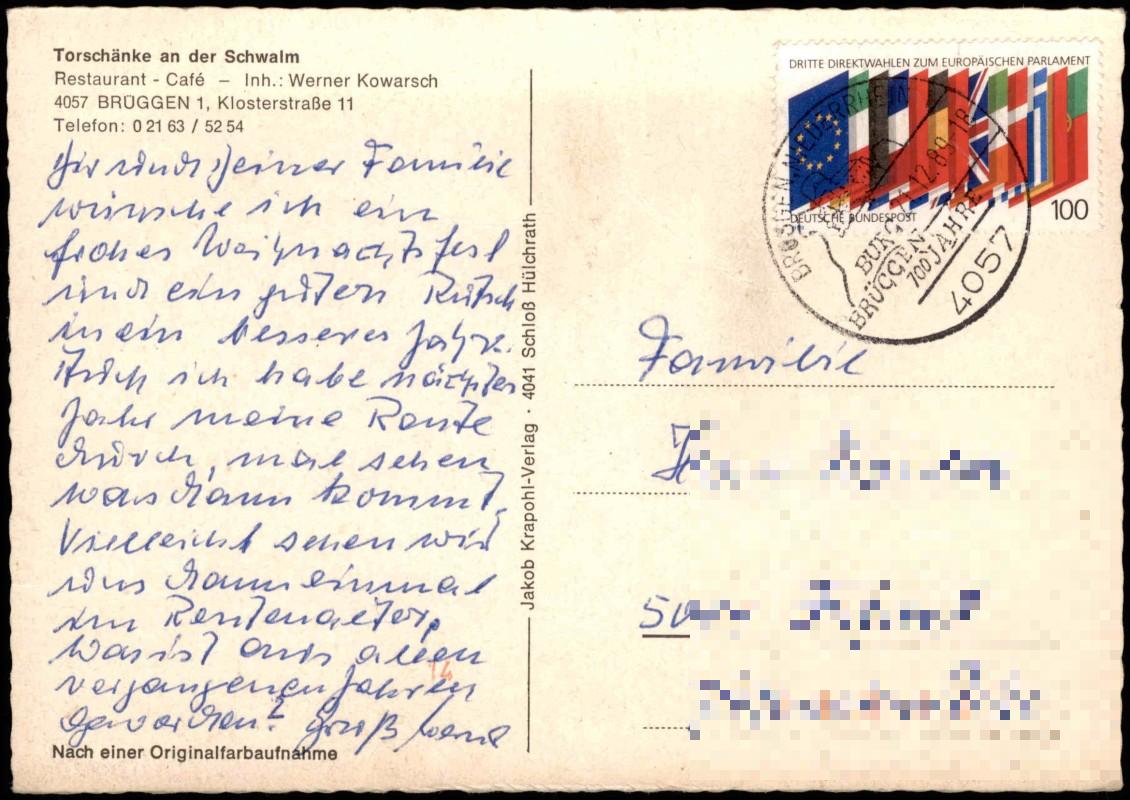 Torschänke an der Schwalm
Restaurant - Café – Inh.: Werner Kowarsch
4057 BRÜGGEN 1, Klosterstraße 11
Telefon: 0 21 63 / 52 54
Dir und Deiner Familie
wünsche ich ein
frohes Weihnachtsfest
und ein guten Rutsch
in ein besseres Jahr.
Auch ich habe nächstes
Jahr meine Rente
durch, mal sehen
was dann kommt.
Vielleicht sehen wir
uns dann einmal
im Rentenalter,
was ist aus allen
vergangenen Jahren
geworden? Gruß
Nach einer Originalfarbaufnahme
Jakob Krapohl-Verlag · 4041 Schloß Hülchrath
DRITTE DIREKTWAHLEN ZUM EUROPÄISCHEN PARLAMENT
DEUTSCHE BUNDESPOST
100
BRÜGGEN, NIEDERRHEIN
12.89.18
BURG
BRÜGGEN
700 JAHRE
4057
Familie
50
14